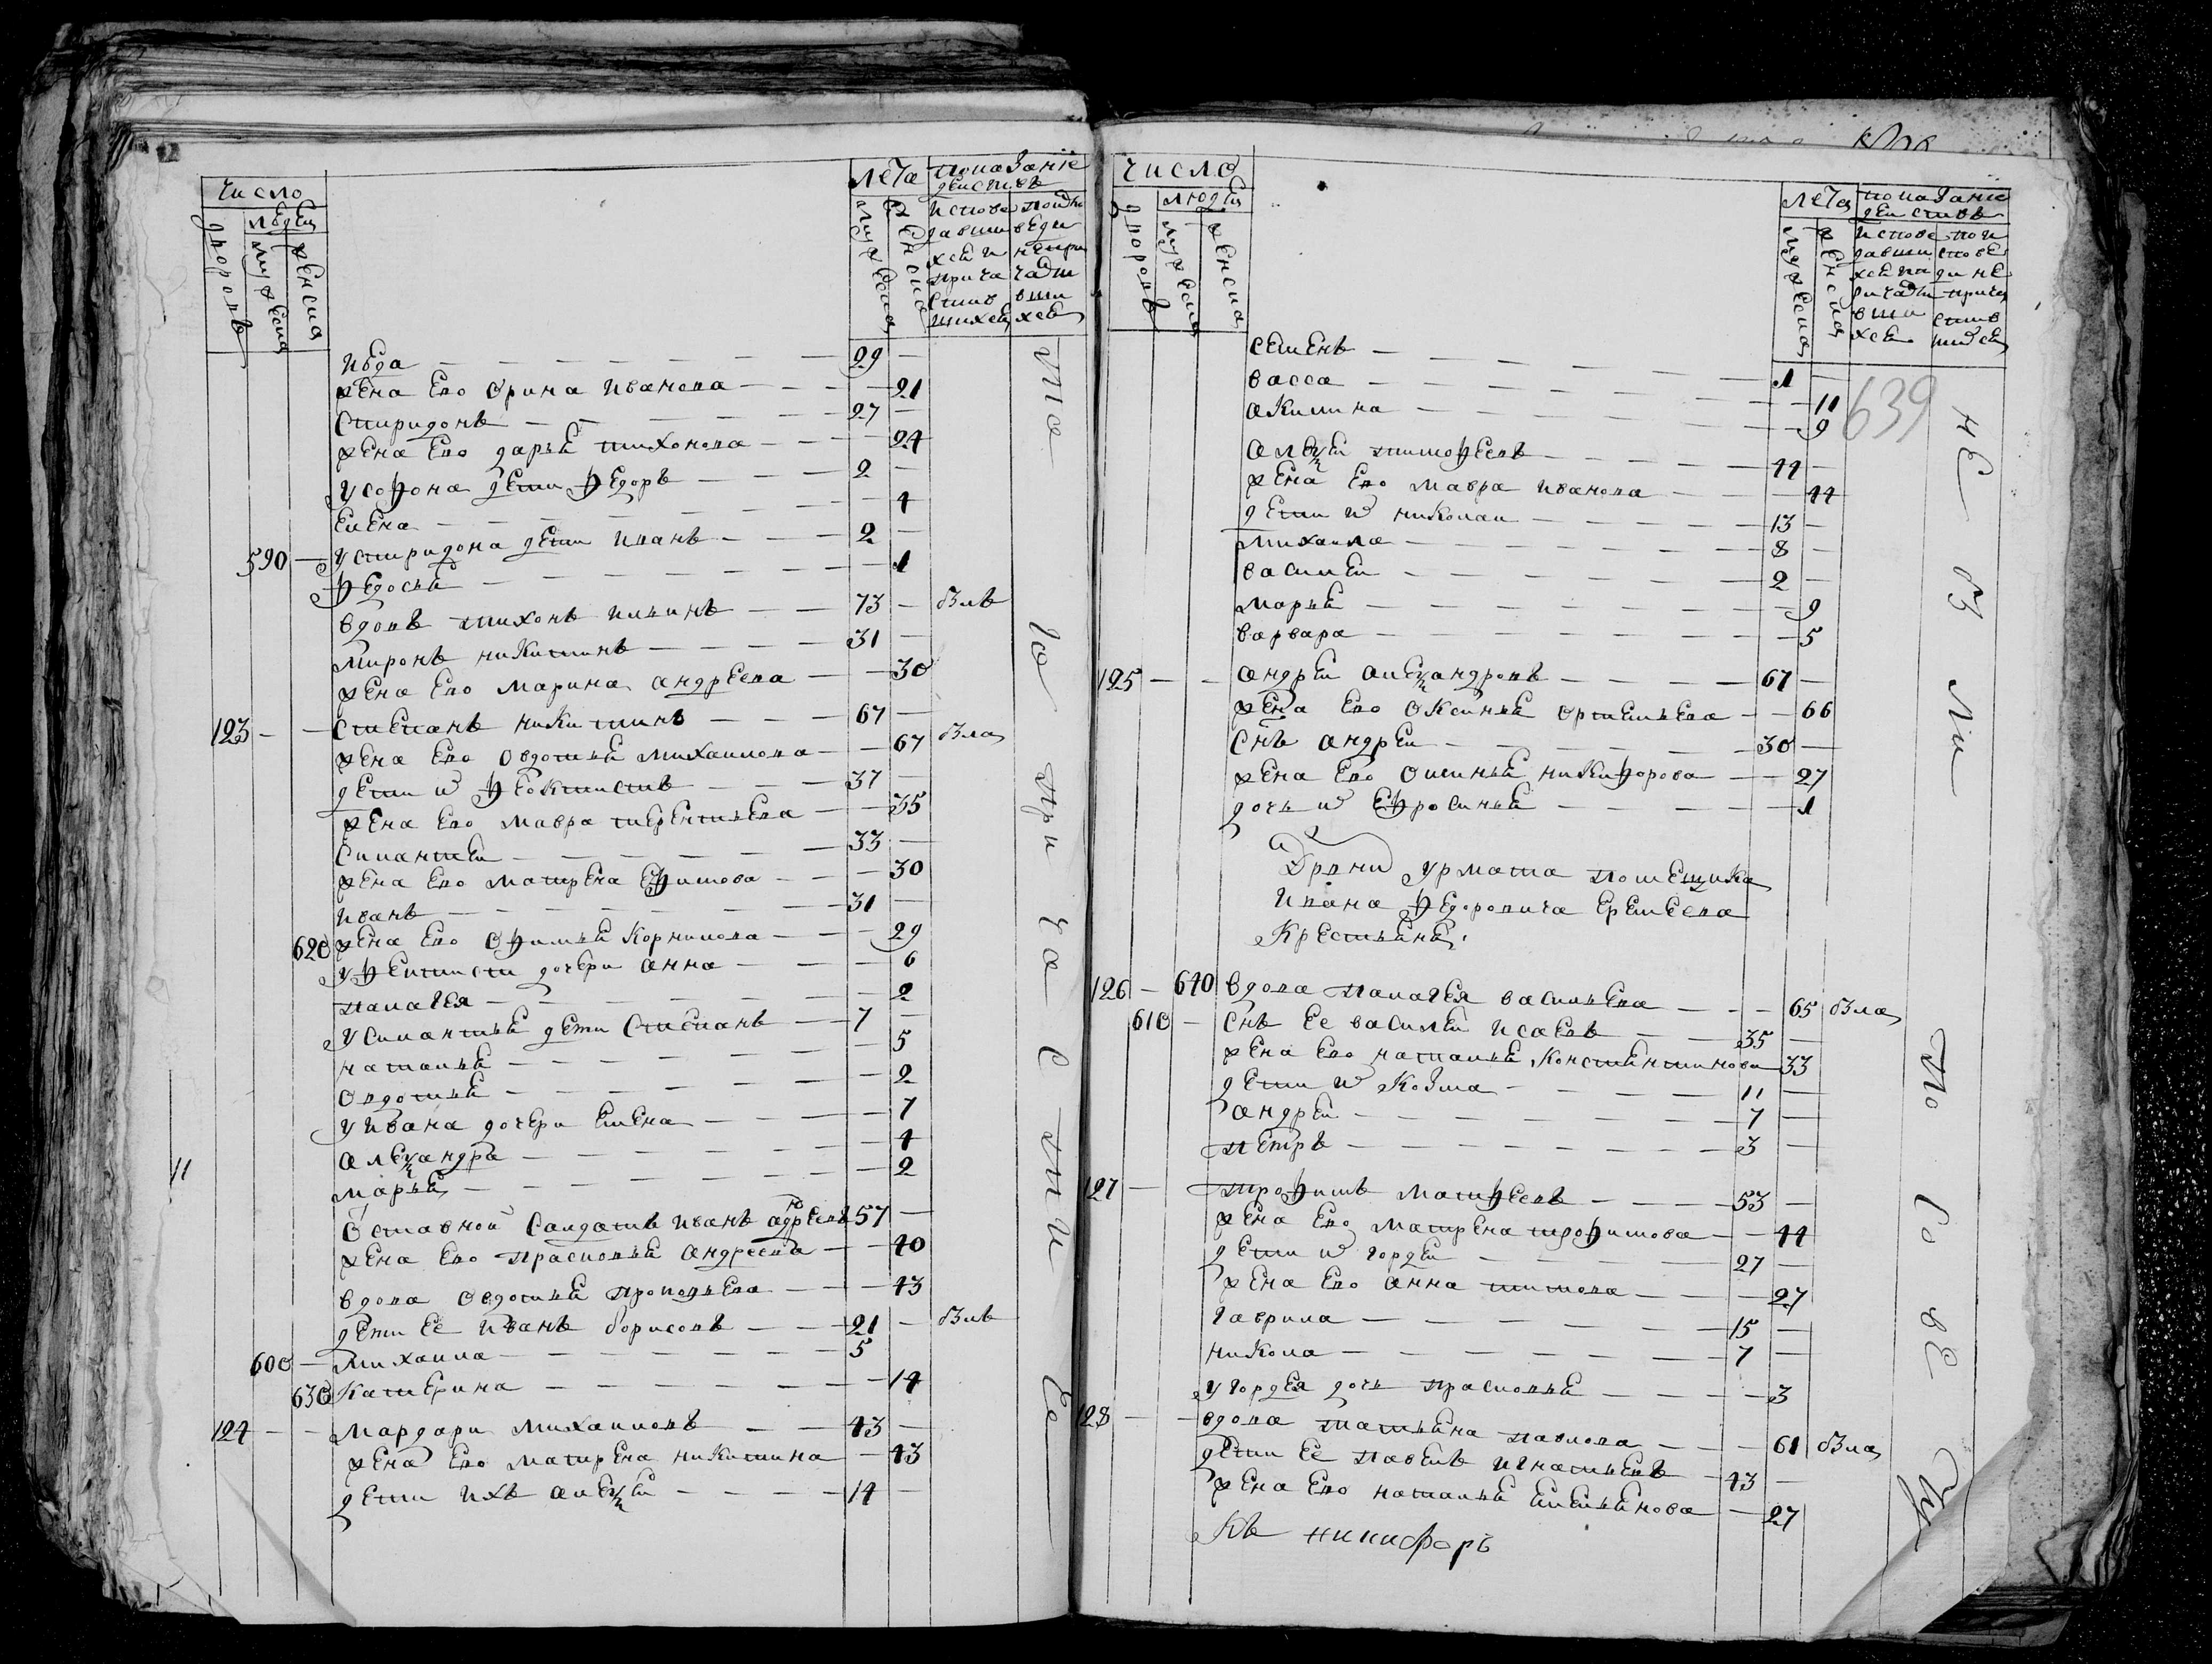 число
дворовъ
людеи
мужеска
женска
лета
мужеска
женска
показанiе
деиствъ
исповедавшихся и причастившихся
иѣда — 29
жена ево орина иванова — 21
спиридонъ — 27
жена ево дарья тихонова — 24
у софона дети федоръ — 2
елена — 4
590 у спиридона дети иванъ — 2
федосья — 1
вдовъ тихонъ ильинъ — 73 — блв
миронъ никитинъ — 31
жена ево марина андреева — 30
123 — степанъ никитинъ — 67
жена ево овдотья михаилова — 67 бла
дети их феоктистъ — 37
жена ево мавра терентьева — 35
силантеи — 33
жена ево матрена ефимова — 30
иванъ — 31
620 жена ево офимья корнилова — 29
у фектиста дочери анна — 6
палагея — 2
у силантья дети степанъ — 7
наталья — 5
овдотья — 2
у ивана дочери елена — 7
алеѯандра — 4
марья — 2
оставной салдатъ иванъ андреевъ 57
жена ево прасковья андреева — 40
вдова овдотья прокопьева — 43
дети ее иванъ борисовъ — 21 — блв
600 — михаила — 5
630 катерина — 14
124 — мардари михаиловъ — 43
жена ево матрена никитина — 43
дети ихъ алеѯеи — 14
11
число
дворовъ
людеи
мужеска
женска
лета
мужеска
женска
показанiе
деиствъ
639
семенъ — 1
васса — 11
акилина — 9
алеѯеи тимофеевъ — 44
жена ево мавра иванова — 44
дети их николаи — 13
михаила — 8
василеи — 2
марья — 9
варвара — 5
125 — андреи алеѯандровъ — 67
жена ево оксинья артемьева — 66
снъ андреи — 30
жена ево оксинья никифорова — 27
дочь их ефросинья — 1
Дрвни урмата помещика
ивана федоровича еремеева
крестьяня
126 — 640 вдова палагея васильева — 65 бла
610 — снъ ее василеи исаевъ — 35
жена ево наталья констянтинова — 33
дети их козма — 11
андреи — 7
петръ — 3
127 — трофимъ матфеевъ — 53
жена ево матрена трофимова — 44
дети их гордеи — 27
жена ево анна титова — 27
гаврила — 15
никола — 7
у гордея дочь прасковья — 3
128 — вдова татьяна павлова — 61 бла
дети ее павелъ игнатьевъ — 43
жена ево наталья емельянова — 27
никифоръ